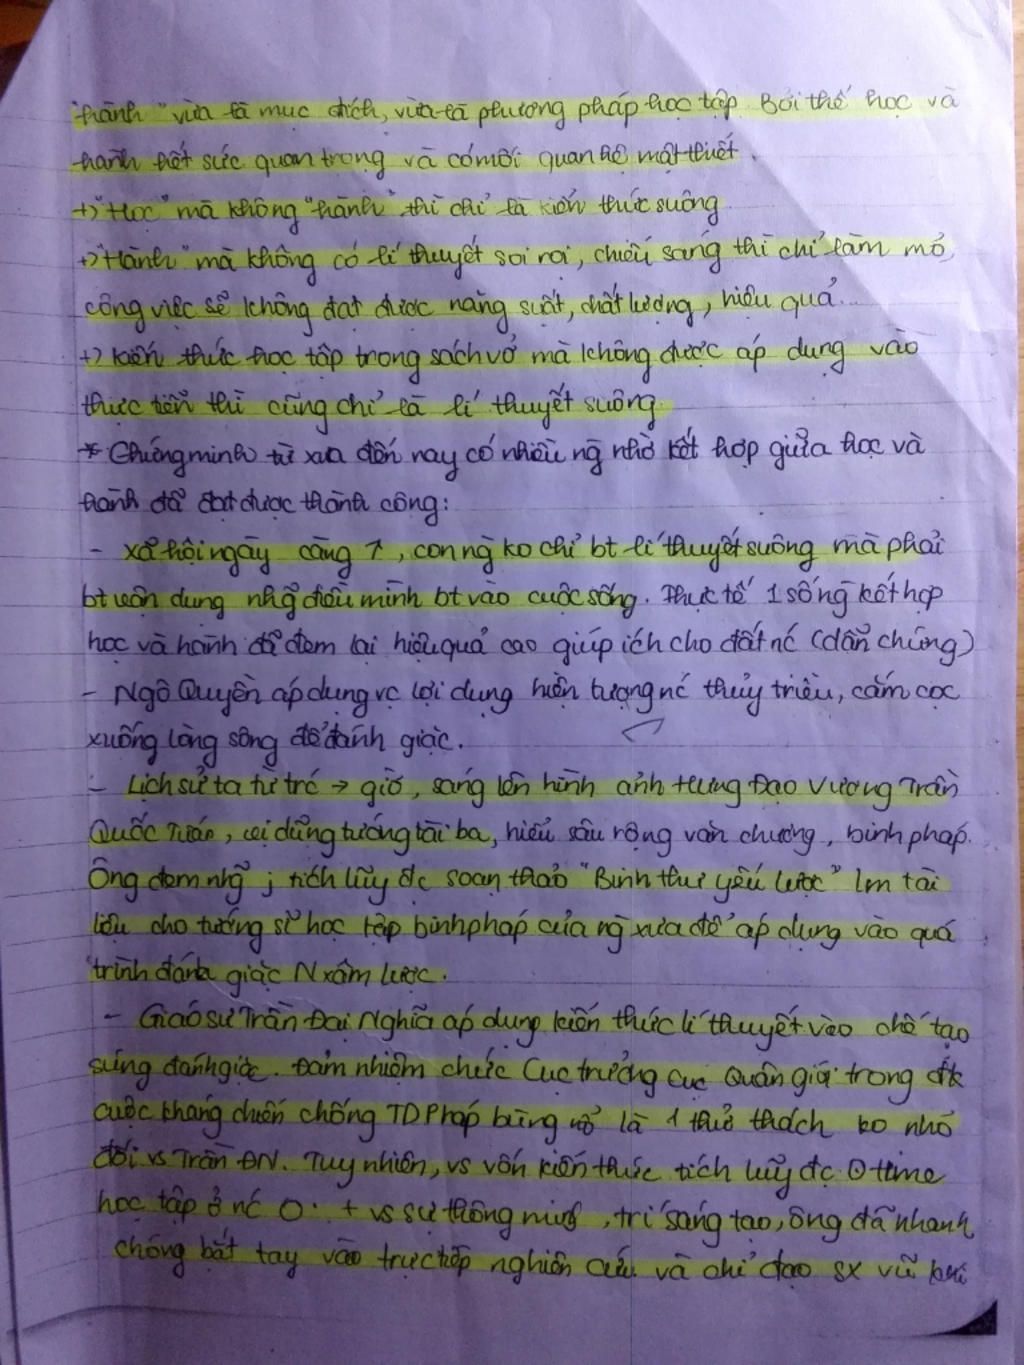 hành" vừa là mục đích, vừa là phương pháp học tập. Bởi thế học và
hành hết sức quan trọng và có mối quan hệ mật thiết.
+) "Học" mà không "hành" thì chỉ là kiến thức suông.
+) "Hành" mà không có lí thuyết soi rọi, chiếu sáng thì chỉ làm mò,
công việc sẽ không đạt được năng suất, chất lượng, hiệu quả...
+) Kiến thức học tập trong sách vở mà không được áp dụng vào
thực tiễn thì cũng chỉ là lí thuyết suông.
* Chứng minh từ xưa đến nay có nhiều ng nhờ kết hợp giữa học và
hành để đạt được thành công:
- Xã hội ngày càng ↑, con ng ko chỉ bt lí thuyết suông mà phải
bt vận dụng nhg điều mình bt vào cuộc sống. Thực tế 1 số ng kết hợp
học và hành để đem lại hiệu quả cao giúp ích cho đất nc (dẫn chứng)
- Ngô Quyền áp dụng vc lợi dụng hiện tượng nc thủy triều, cắm cọc
xuống lòng sông để đánh giặc.
- Lịch sử ta từ trc → giờ, sáng lên hình ảnh Hưng Đạo Vương Trần
Quốc Tuấn, vị dũng tướng tài ba, hiểu sâu rộng văn chương, binh pháp.
Ông đem nhg j tích lũy đc soạn thảo "Binh thư yếu lược" lm tài
liệu cho tướng sĩ học tập binh pháp của ng xưa để áp dụng vào quá
trình đánh giặc N xâm lược.
- Giáo sư Trần Đại Nghĩa áp dụng kiến thức lí thuyết vào chế tạo
súng đánh giặc. Đảm nhiệm chức Cục trưởng Cục Quân giới trong đk
cuộc kháng chiến chống TD Pháp bùng nổ là 1 thử thách ko nhỏ
đối vs Trần ĐN. Tuy nhiên, vs vốn kiến thức tích lũy đc time
học tập ở nc + vs sự thông minh, trí sáng tạo, ông đã nhanh
chóng bắt tay vào trực tiếp nghiên cứu và chỉ đạo sx vũ khí